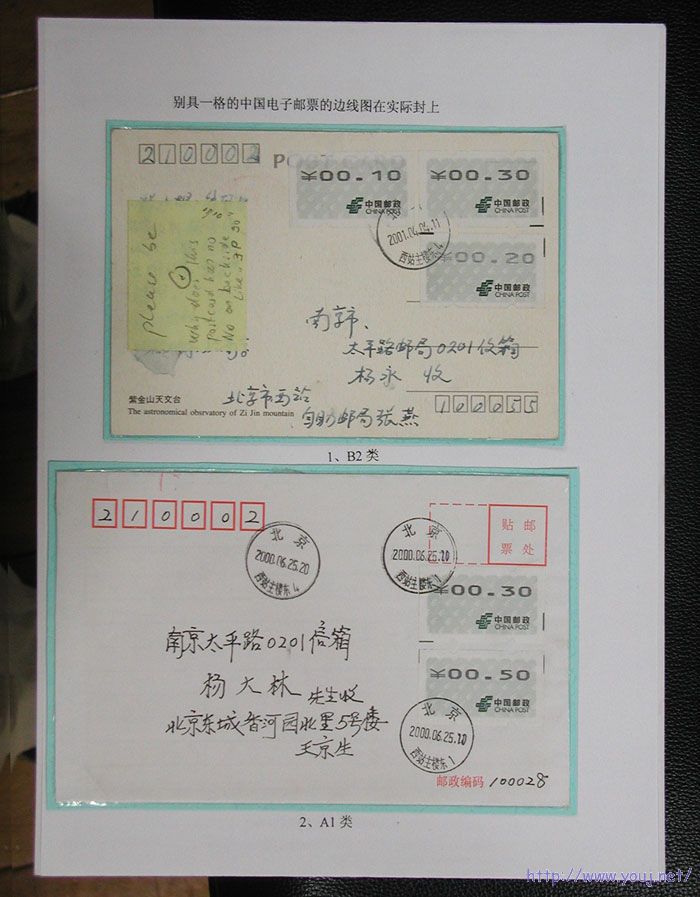 别具一格的中国电子邮票的边线图在实际封上
210002
¥00.10
中国邮政
CHINA POST
¥00.30
中国邮政
CHINA POST
2001.04.04.11
西站主楼东4
¥00.20
中国邮政
CHINA POST
please be
why does this
postcard has no
No on backside
like
南京市、
太平路邮局0201信箱
杨永 收
北京市西站
自助邮局张燕
100055
紫金山天文台
The astronomical obsrvatory of Zi Jin mountain
1、B2 类
210002
北京
2000.06.25.20
西站主楼东4
北京
2000.06.25.10
西站主楼东1
贴 邮
票 处
¥00.30
中国邮政
CHINA POST
¥00.50
中国邮政
CHINA POST
南京太平路0201信箱
杨大林 先生收
北京东城香河园北里5号楼
王京生
北京
2000.06.25.10
西站主楼东1
邮政编码 100028
2、A1 类
http://www.youj.net/